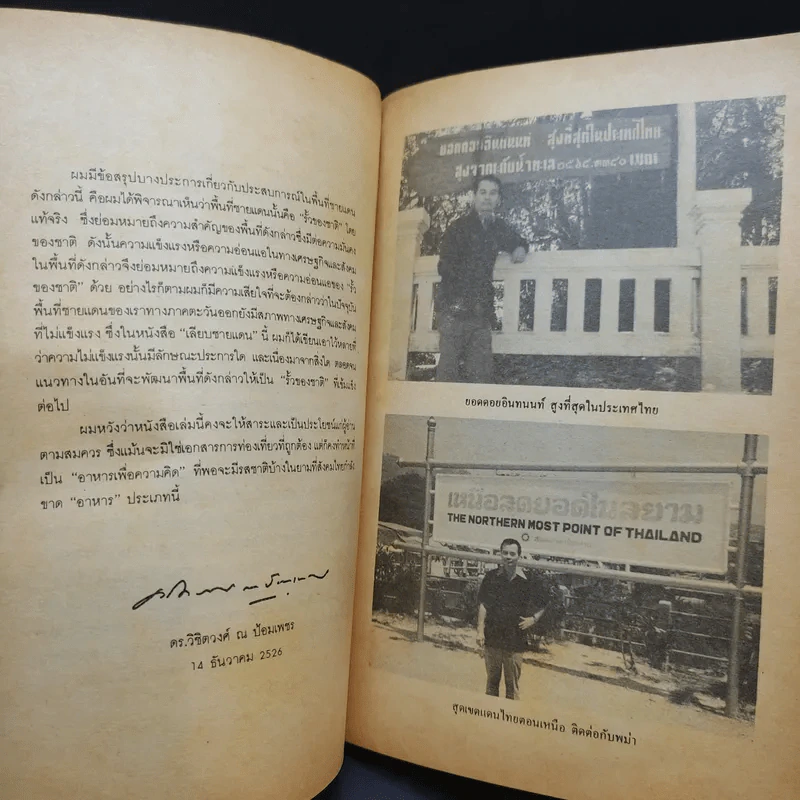 ผมมีข้อสรุปบางประการเกี่ยวกับประสบการณ์ในพื้นที่ชายแดน
ดังกล่าวนี้ คือผมได้พิจารณาเห็นว่าพื้นที่ชายแดนนั้นคือ “รั้วของชาติ” โดย
แท้จริง ซึ่งย่อมหมายถึงความสำคัญของพื้นที่ดังกล่าวซึ่งมีต่อความมั่นคง
ของชาติ ดังนั้นความแข็งแรงหรือความอ่อนแอในทางเศรษฐกิจและสังคม
ในพื้นที่ดังกล่าวจึงย่อมหมายถึงความแข็งแรงหรือความอ่อนแอของ “รั้ว
ของชาติ” ด้วย อย่างไรก็ตามผมก็มีความเสียใจที่จะต้องกล่าวว่าในปัจจุบัน
พื้นที่ชายแดนของเราทางภาคตะวันออกยังมีสภาพทางเศรษฐกิจและสังคม
ที่ไม่แข็งแรง ซึ่งในหนังสือ “เลียบชายแดน” นี้ ผมก็ได้เขียนเอาไว้หลายที่
ว่าความไม่แข็งแรงนั้นมีลักษณะประการใด และเนื่องมาจากสิ่งใด ตลอดจน
แนวทางในอันที่จะพัฒนาพื้นที่ดังกล่าวให้เป็น “รั้วของชาติ” ที่เข้มแข็ง
ต่อไป
ผมหวังว่าหนังสือเล่มนี้คงจะให้สาระและเป็นประโยชน์แก่ผู้อ่าน
ตามสมควร ซึ่งแม้นจะมิใช่เอกสารการท่องเที่ยวที่ถูกต้อง แต่ก็คงทำหน้าที่
เป็น “อาหารเพื่อความคิด” ที่พอจะมีรสชาติบ้างในยามที่สังคมไทยกำลัง
ขาด “อาหาร” ประเภทนี้
ดร.วิชิตวงศ์ ณ ป้อมเพชร
14 ธันวาคม 2526
ยอดดอยอินทนนท์ สูงที่สุดในประเทศไทย
สูงจากระดับน้ำทะเล ๒๕๖๕.๓๓๕๐ เมตร
ยอดดอยอินทนนท์ สูงที่สุดในประเทศไทย
เหนือสุดยอดในสยาม
THE NORTHERN MOST POINT OF THAILAND
สุดเขตแดนไทยตอนเหนือ ติดต่อกับพม่า